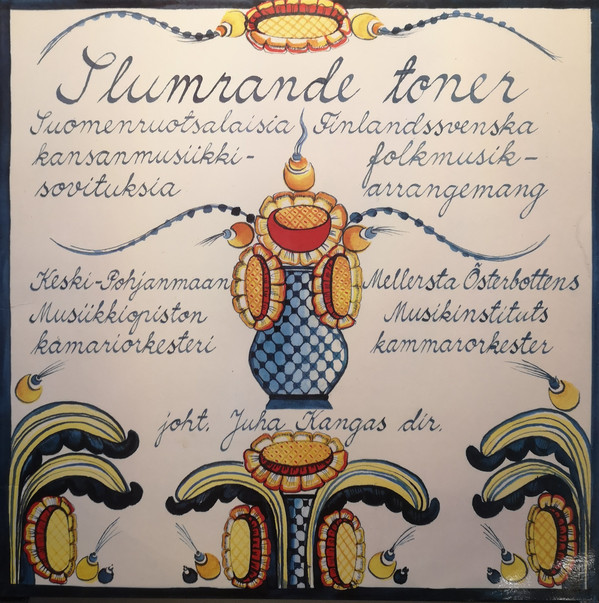 Slumrande toner
Suomenruotsalaisia Finlandssvenska
kansanmusiikki- folkmusik-
sovituksia arrangemang
Keski-Pohjanmaan Mellersta Österbottens
Musiikkiopiston Musikinstituts
kamariorkesteri kammarorkester
joht. Juha Kangas dir.